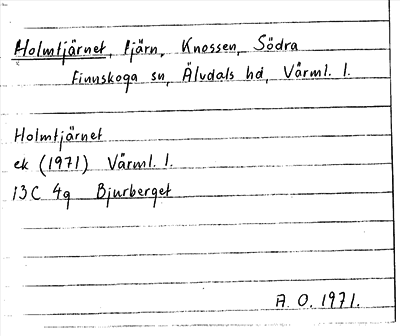 Holmtjärnet, tjärn, Knossen, Södra
Finnskoga sn, Älvdals hd, Värml. l.
Holmtjärnet
ek (1971) Värml. l.
13C 4g Bjurberget
A. O. 1971.